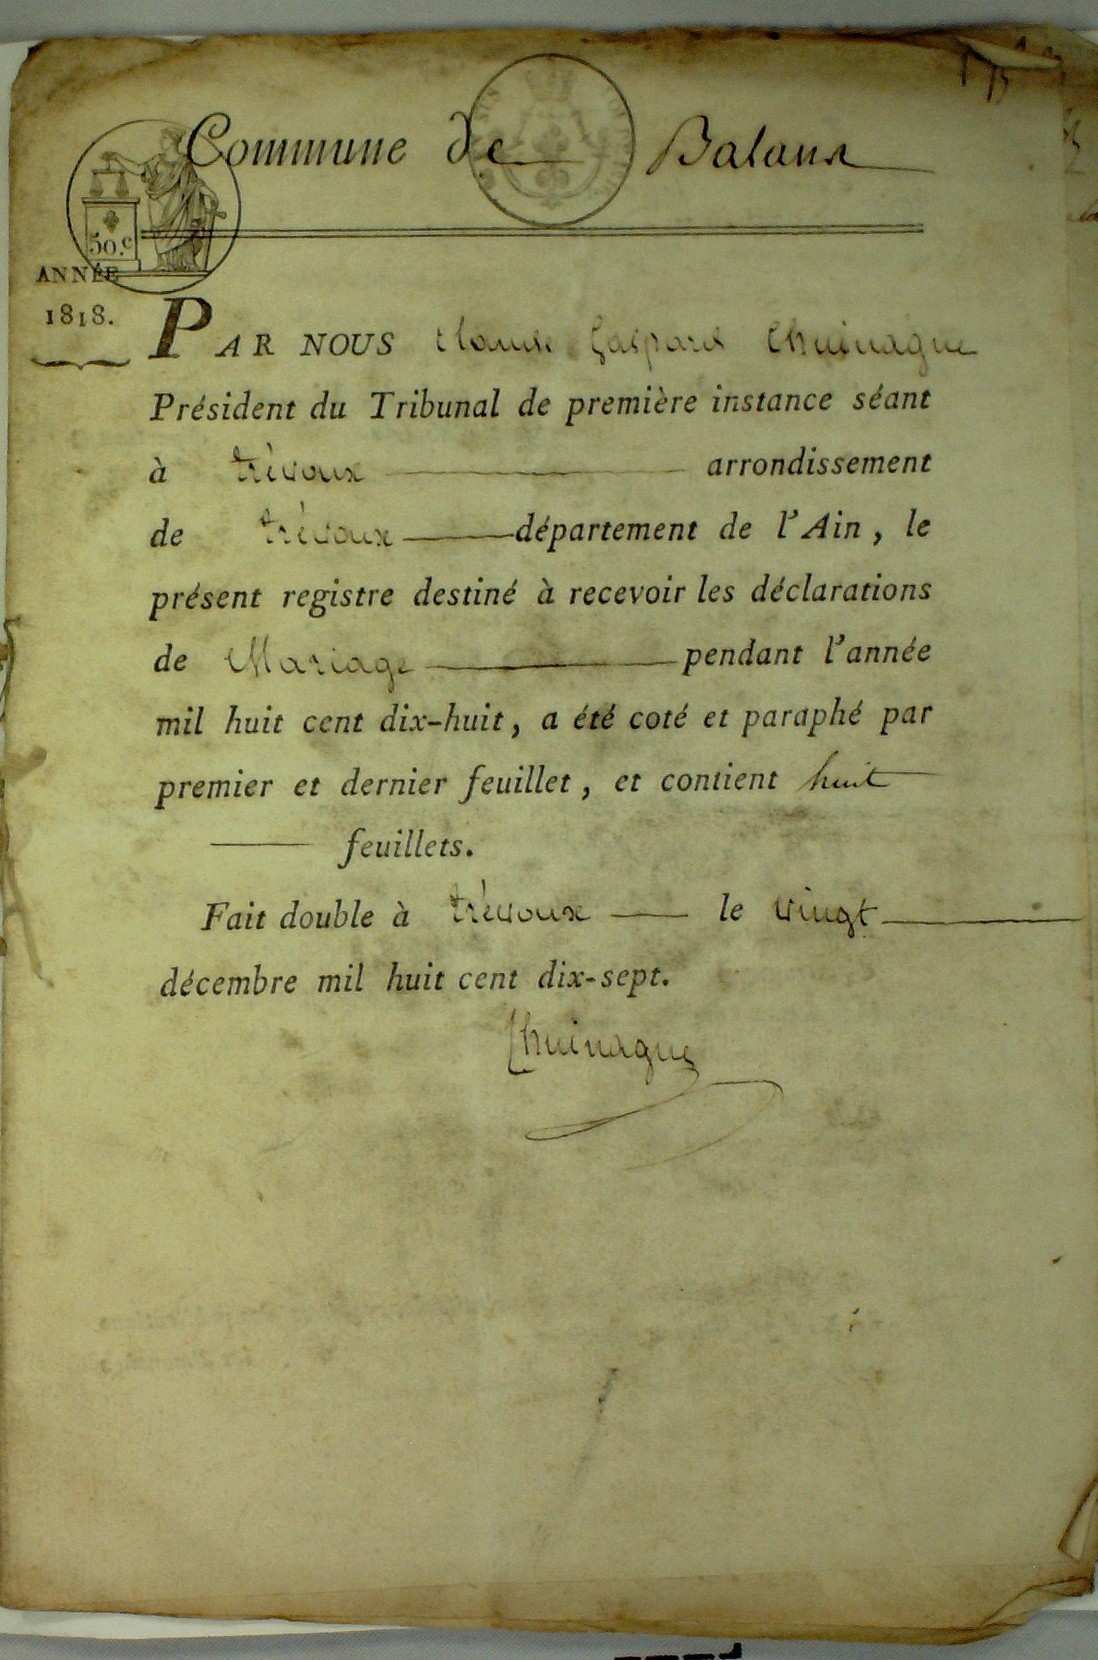 Commune de Balana
50.c
ANNÉE
1818.
PAR NOUS Claude Gaspard Chuinague
Président du Tribunal de première instance séant
à trèvoux arrondissement
de trèvoux département de l'Ain, le
présent registre destiné à recevoir les déclarations
de Mariage pendant l'année
mil huit cent dix-huit, a été coté et paraphé par
premier et dernier feuillet, et contient huit
feuillets.
Fait double à trèvoux le vingt
décembre mil huit cent dix-sept.
Chuinague